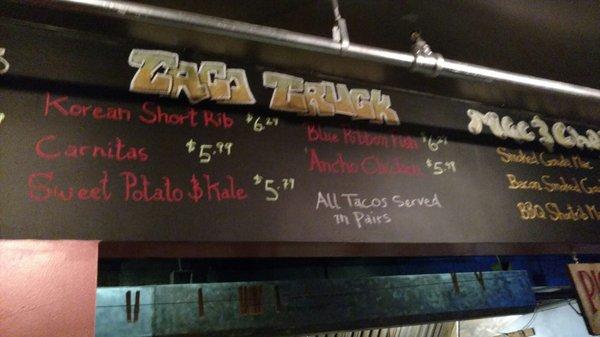 Taco Truck
Korean Short Rib $6.29
Carnitas $5.99
Sweet Potato & Kale $5.79
Blue Ribbon Fish $6.29
Ancho Chicken $5.99
All Tacos Served
in Pairs
Mac & Ch
Smoked Gouda Mac
Bacon Smoked Goud
BBQ Shorti's M